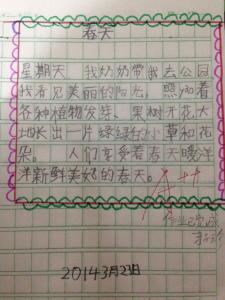 春天
星期天 我奶奶带我去公园
我看见美丽的阳光。照yào着
各种植物发芽、果树开花大
地长出一片绿绿的小草和花
朵。 人们享受着春天暖洋
洋新鲜美好的春天。
作业已完成
2014年3月23日